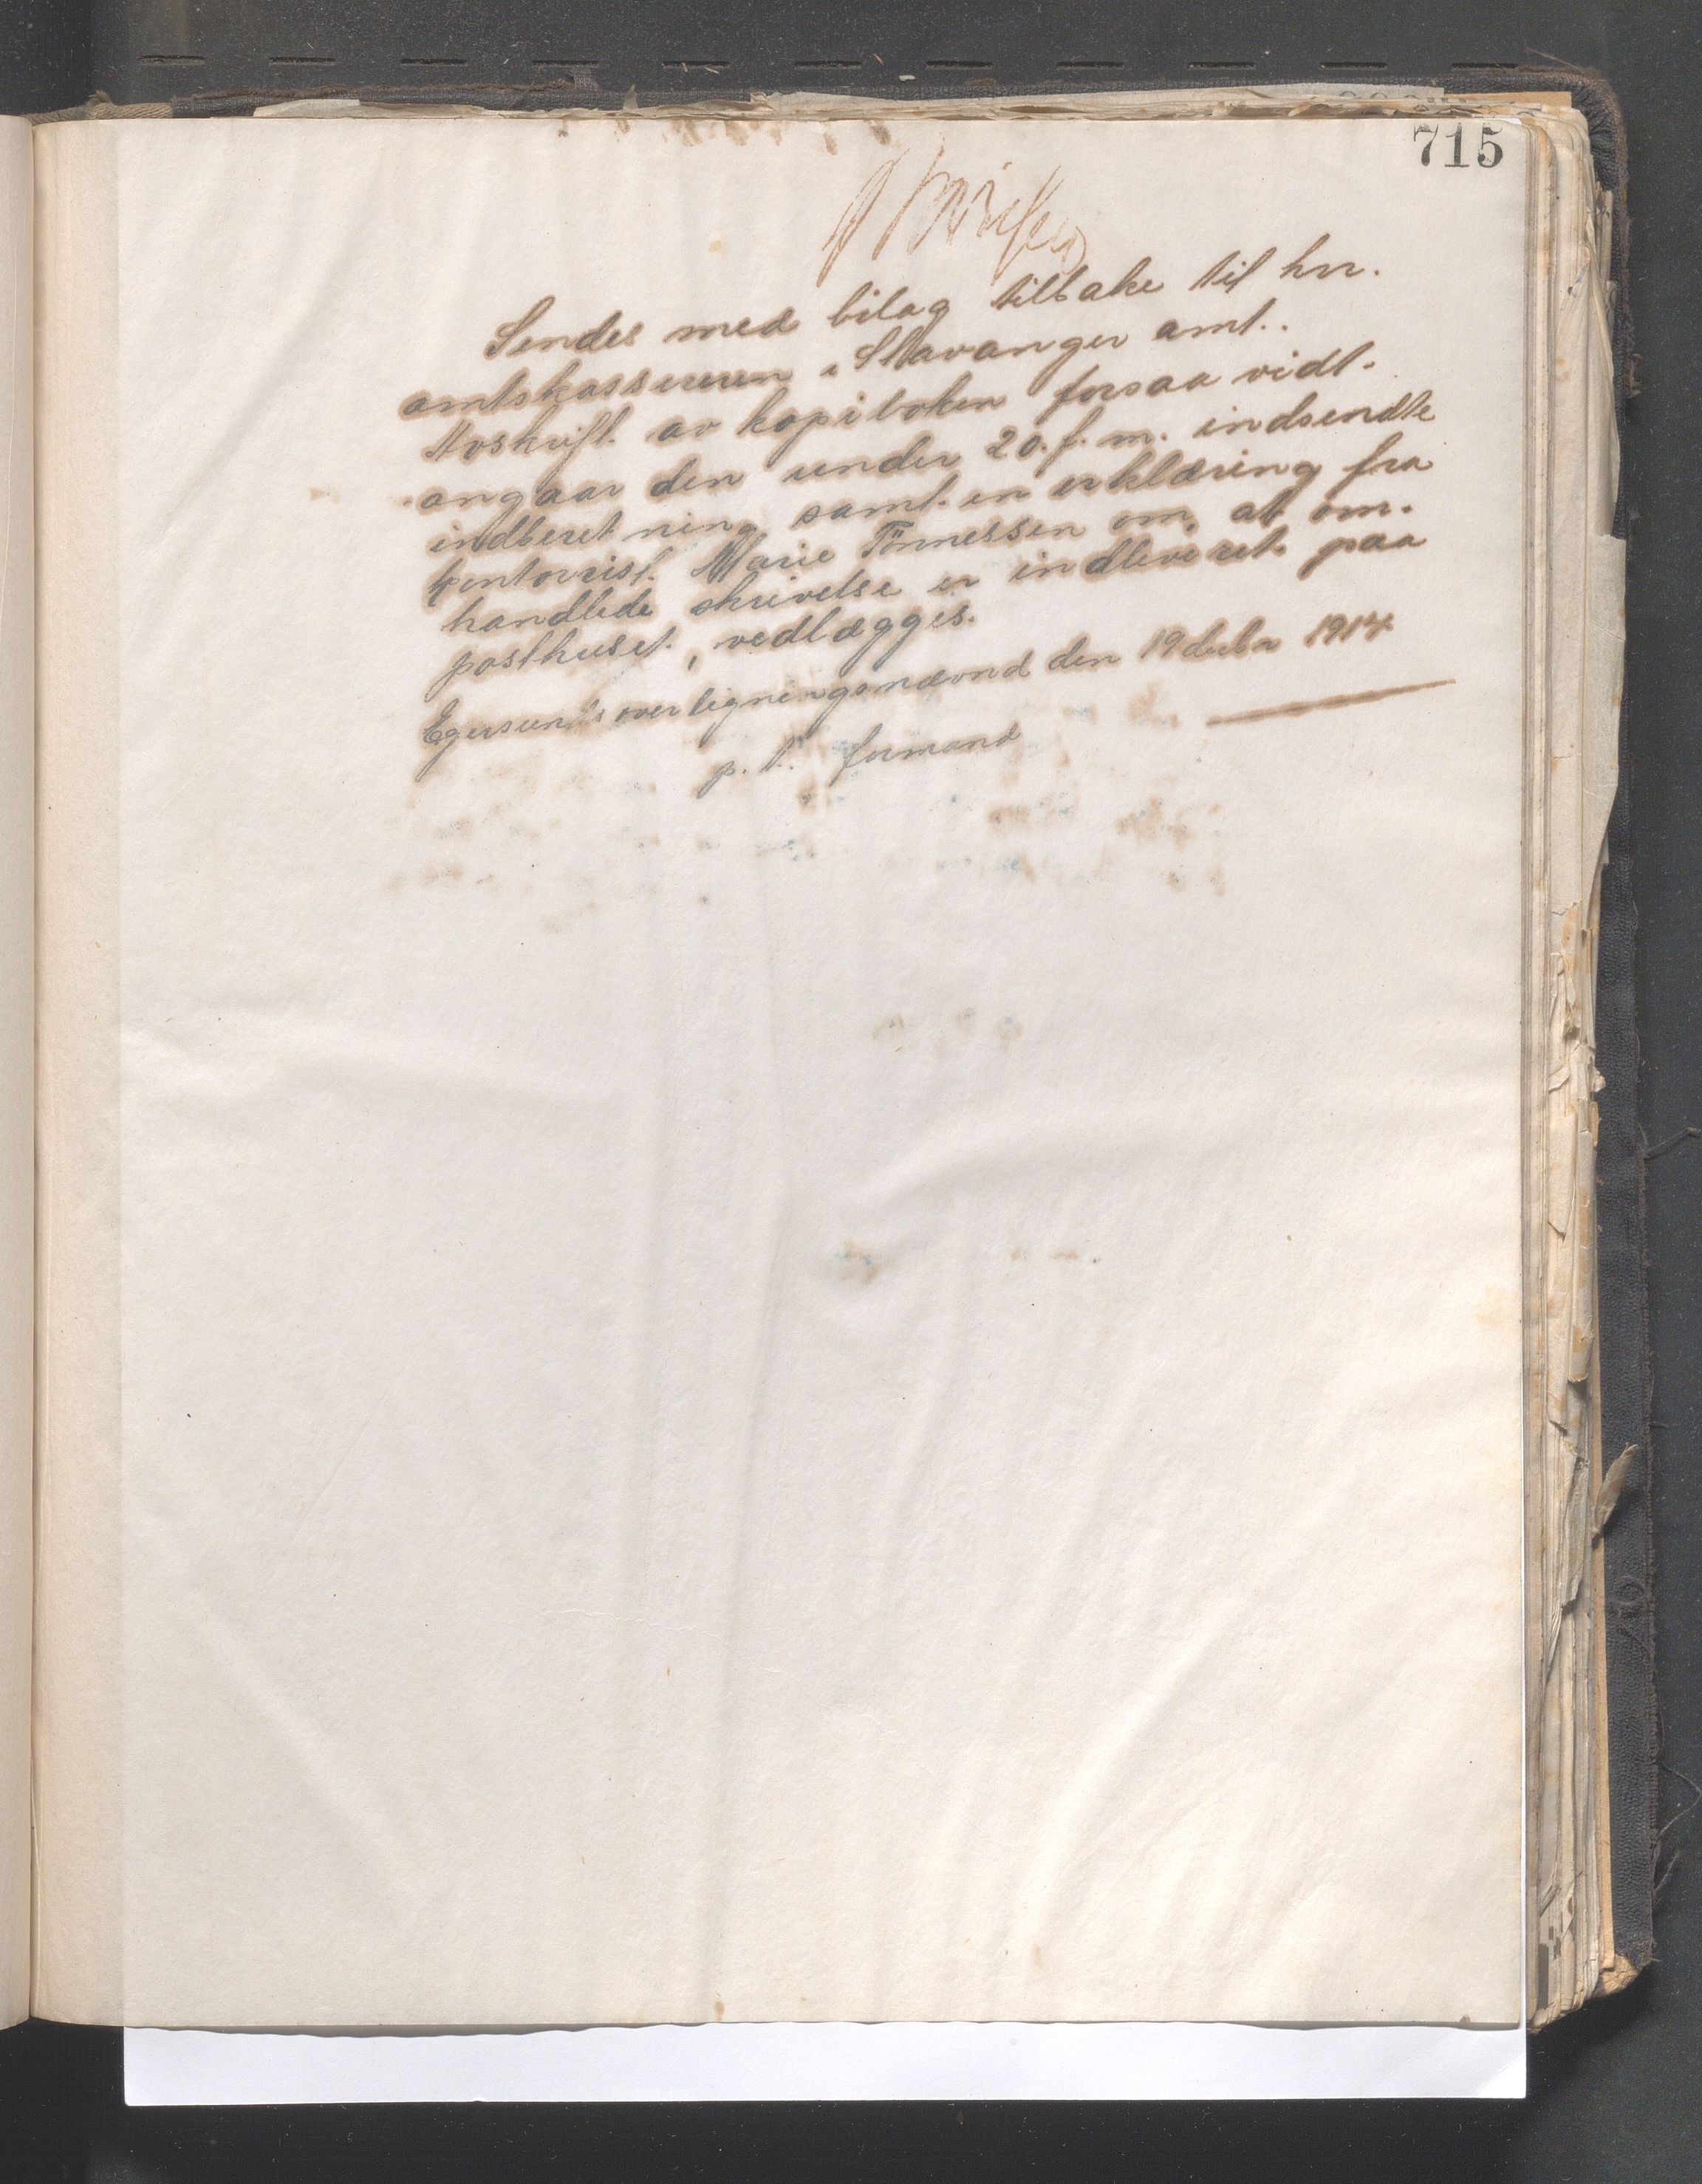 715
Sendes med bilag tilbake til hrr.
amtskassereren i Stavanger amt.
Avskrift av kopiboken forsaa vidt
angaar den under 20. f. m. indsendte
indberetning samt en erklæring fra
kontorist Marie Tönnessen om, at om-
handlede skrivelse er indleveret paa
posthuset, vedlægges.
Egersunds overligningsnævnd den 19 decbr 1914
p. t. formand